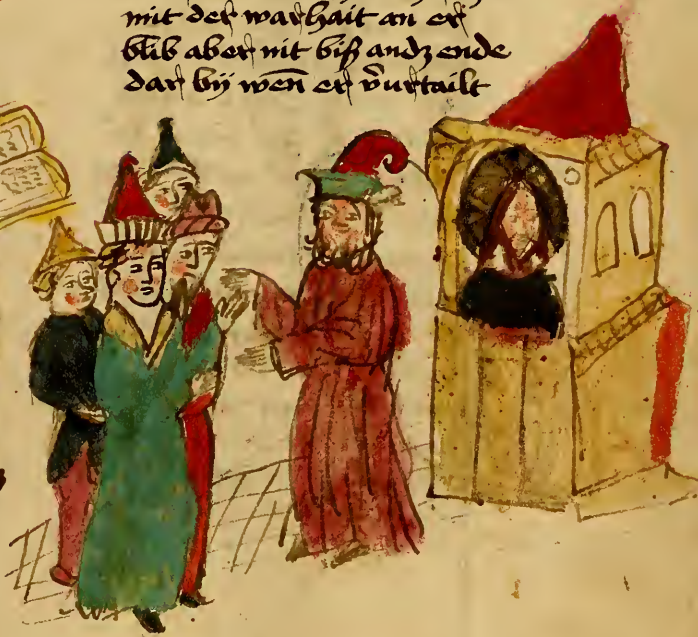 mit der warhait an er
blib aber nit biß andz ende
dar bÿ wen̄ er v̉urtailt